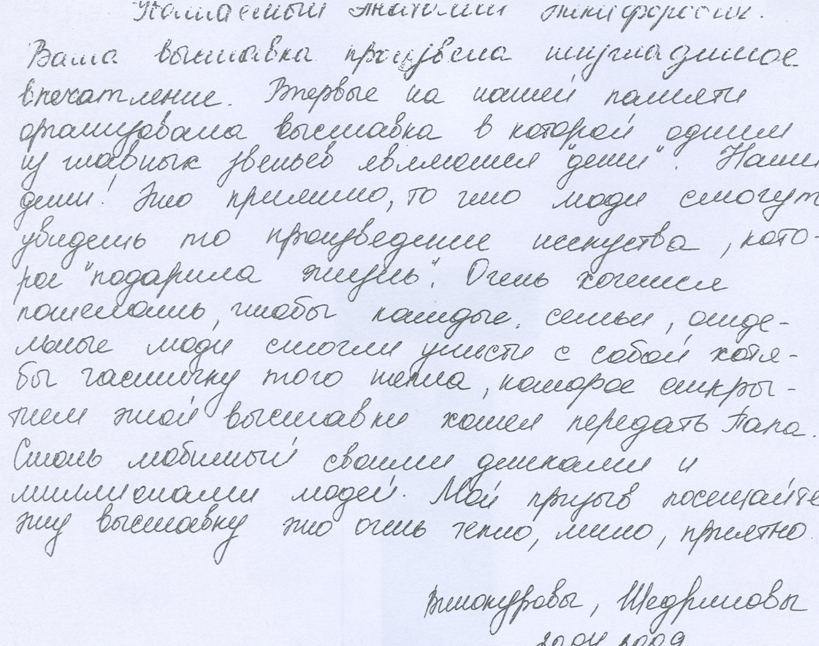 Уважаемый Анатолий Никифорович.
Ваша выставка произвела неизгладимое
впечатление. Впервые на нашей памяти
организована выставка в которой одним
из главных звеньев являются "дети". Наши
дети! Это приятно, то что люди смогут
увидеть то произведение искуства, кото-
рое "подарила жизнь". Очень хочется
пожелать, чтобы каждые. семьи, отде-
льные люди смогли унести с собой хотя-
бы частичку того тепла, которое откры-
тием этой выставки хотел передать Папа.
Столь любимый своими детками и
миллионами людей. Мой призыв посещайте
эту выставку это очень тепло, мило, приятно.
Винокуровы, Щедриновы
2009